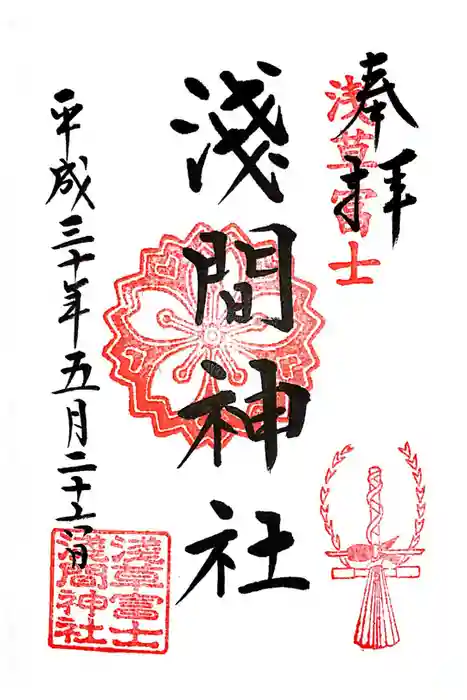 奉拝
浅草富士
淺間神社
平成三十年五月二十六日
淺草富士
淺間神社